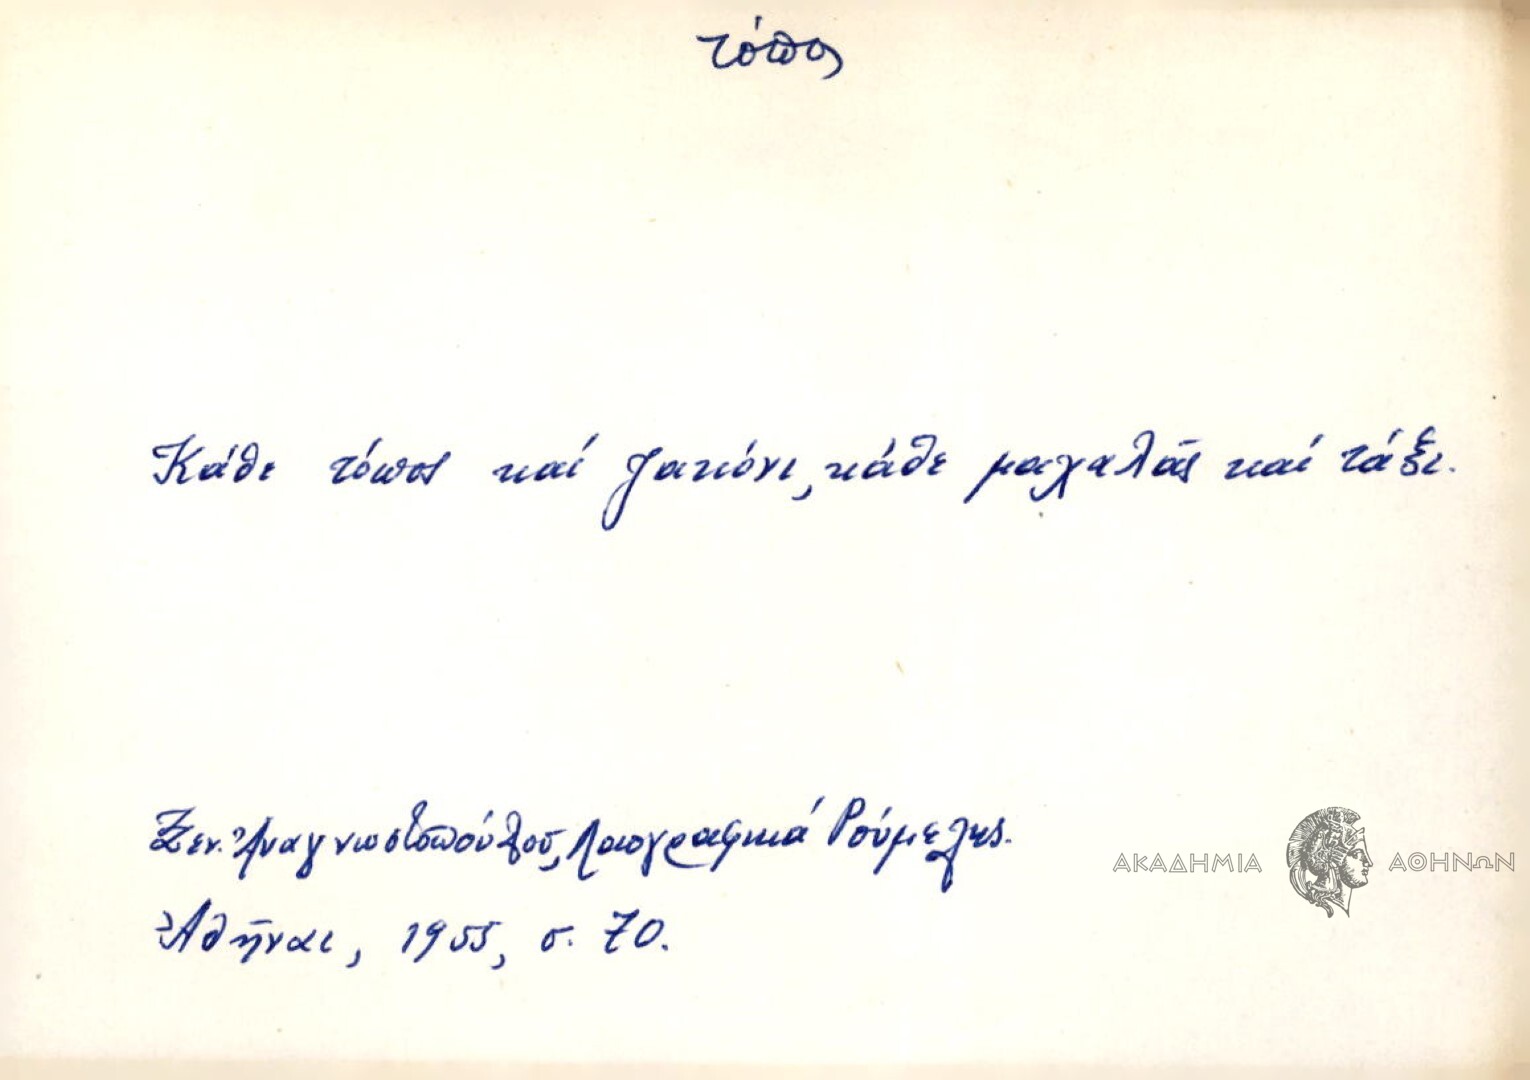 τόπος
Κάθε τόπος καί ζακόνι, κάθε μαχαλᾶς καί τάξι.
Ξεν. Ἀναγνωστοπούλου, Λαογραφικά Ρούμελης.
Ἀθῆναι, 1955, σ. 70.
ΑΚΑΔΗΜΙΑ ΑΘΗΝΩΝ